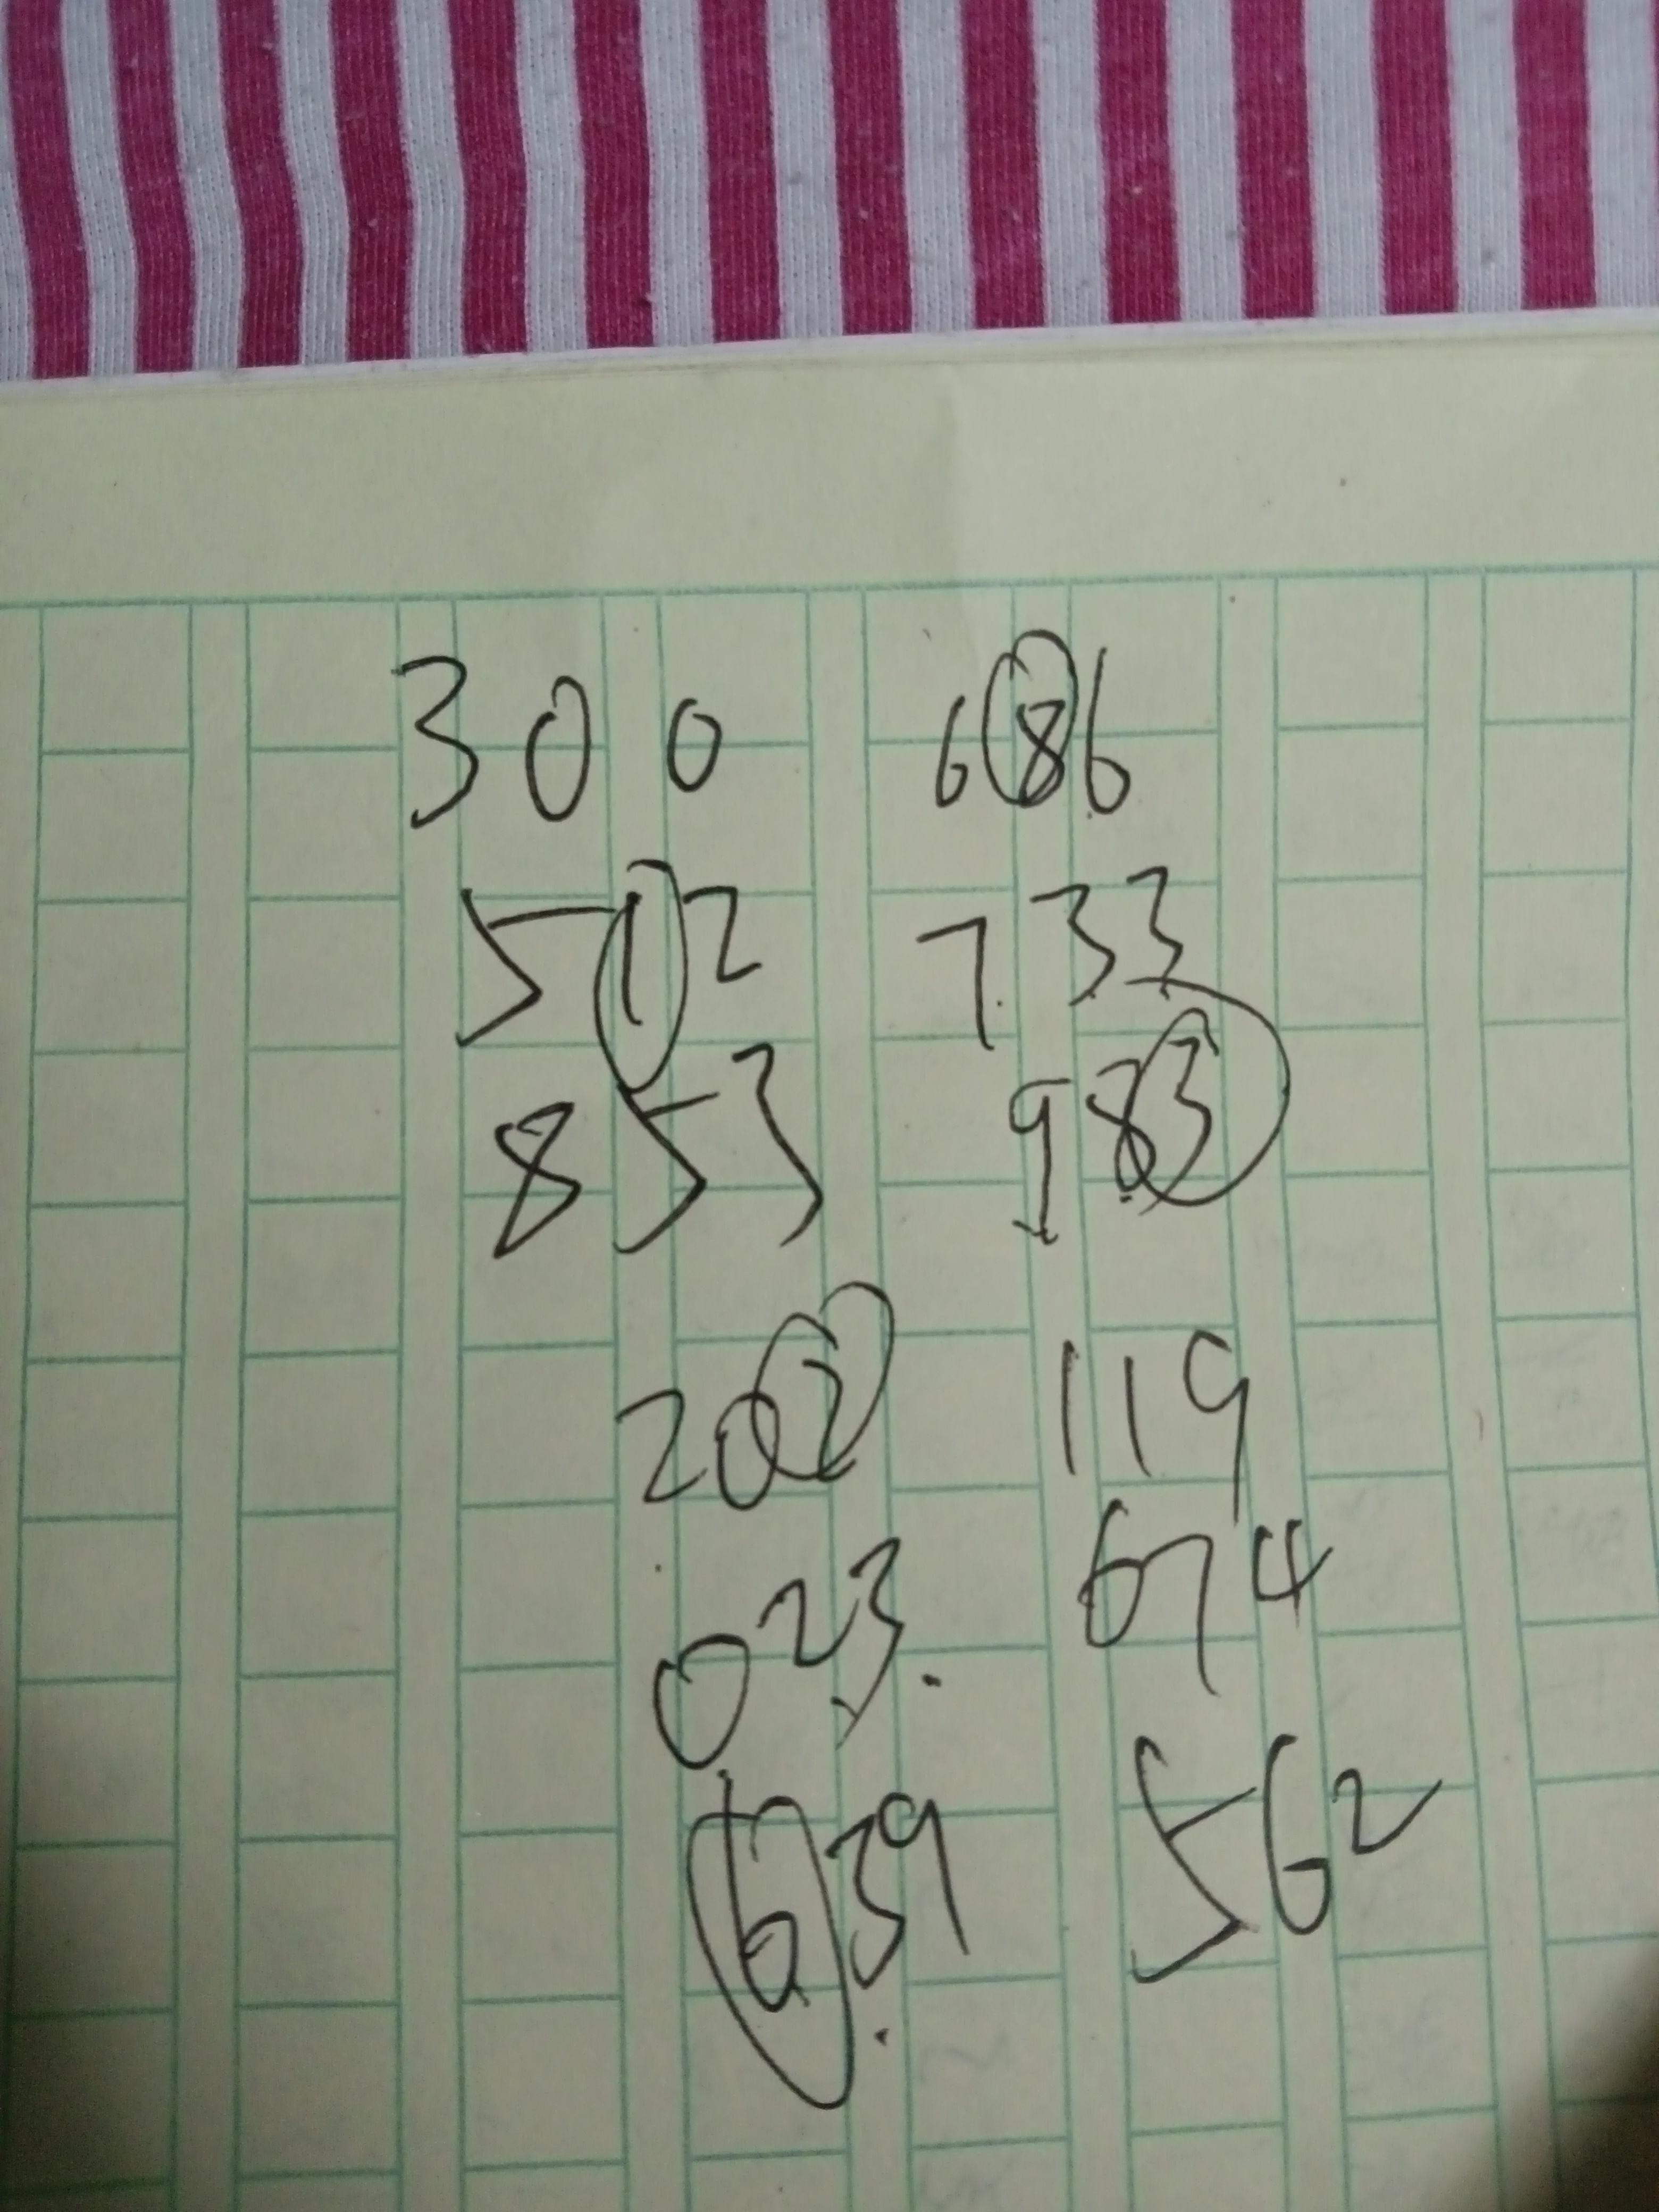 300 686
512 733
853 983
202 119
023. 674
639 562